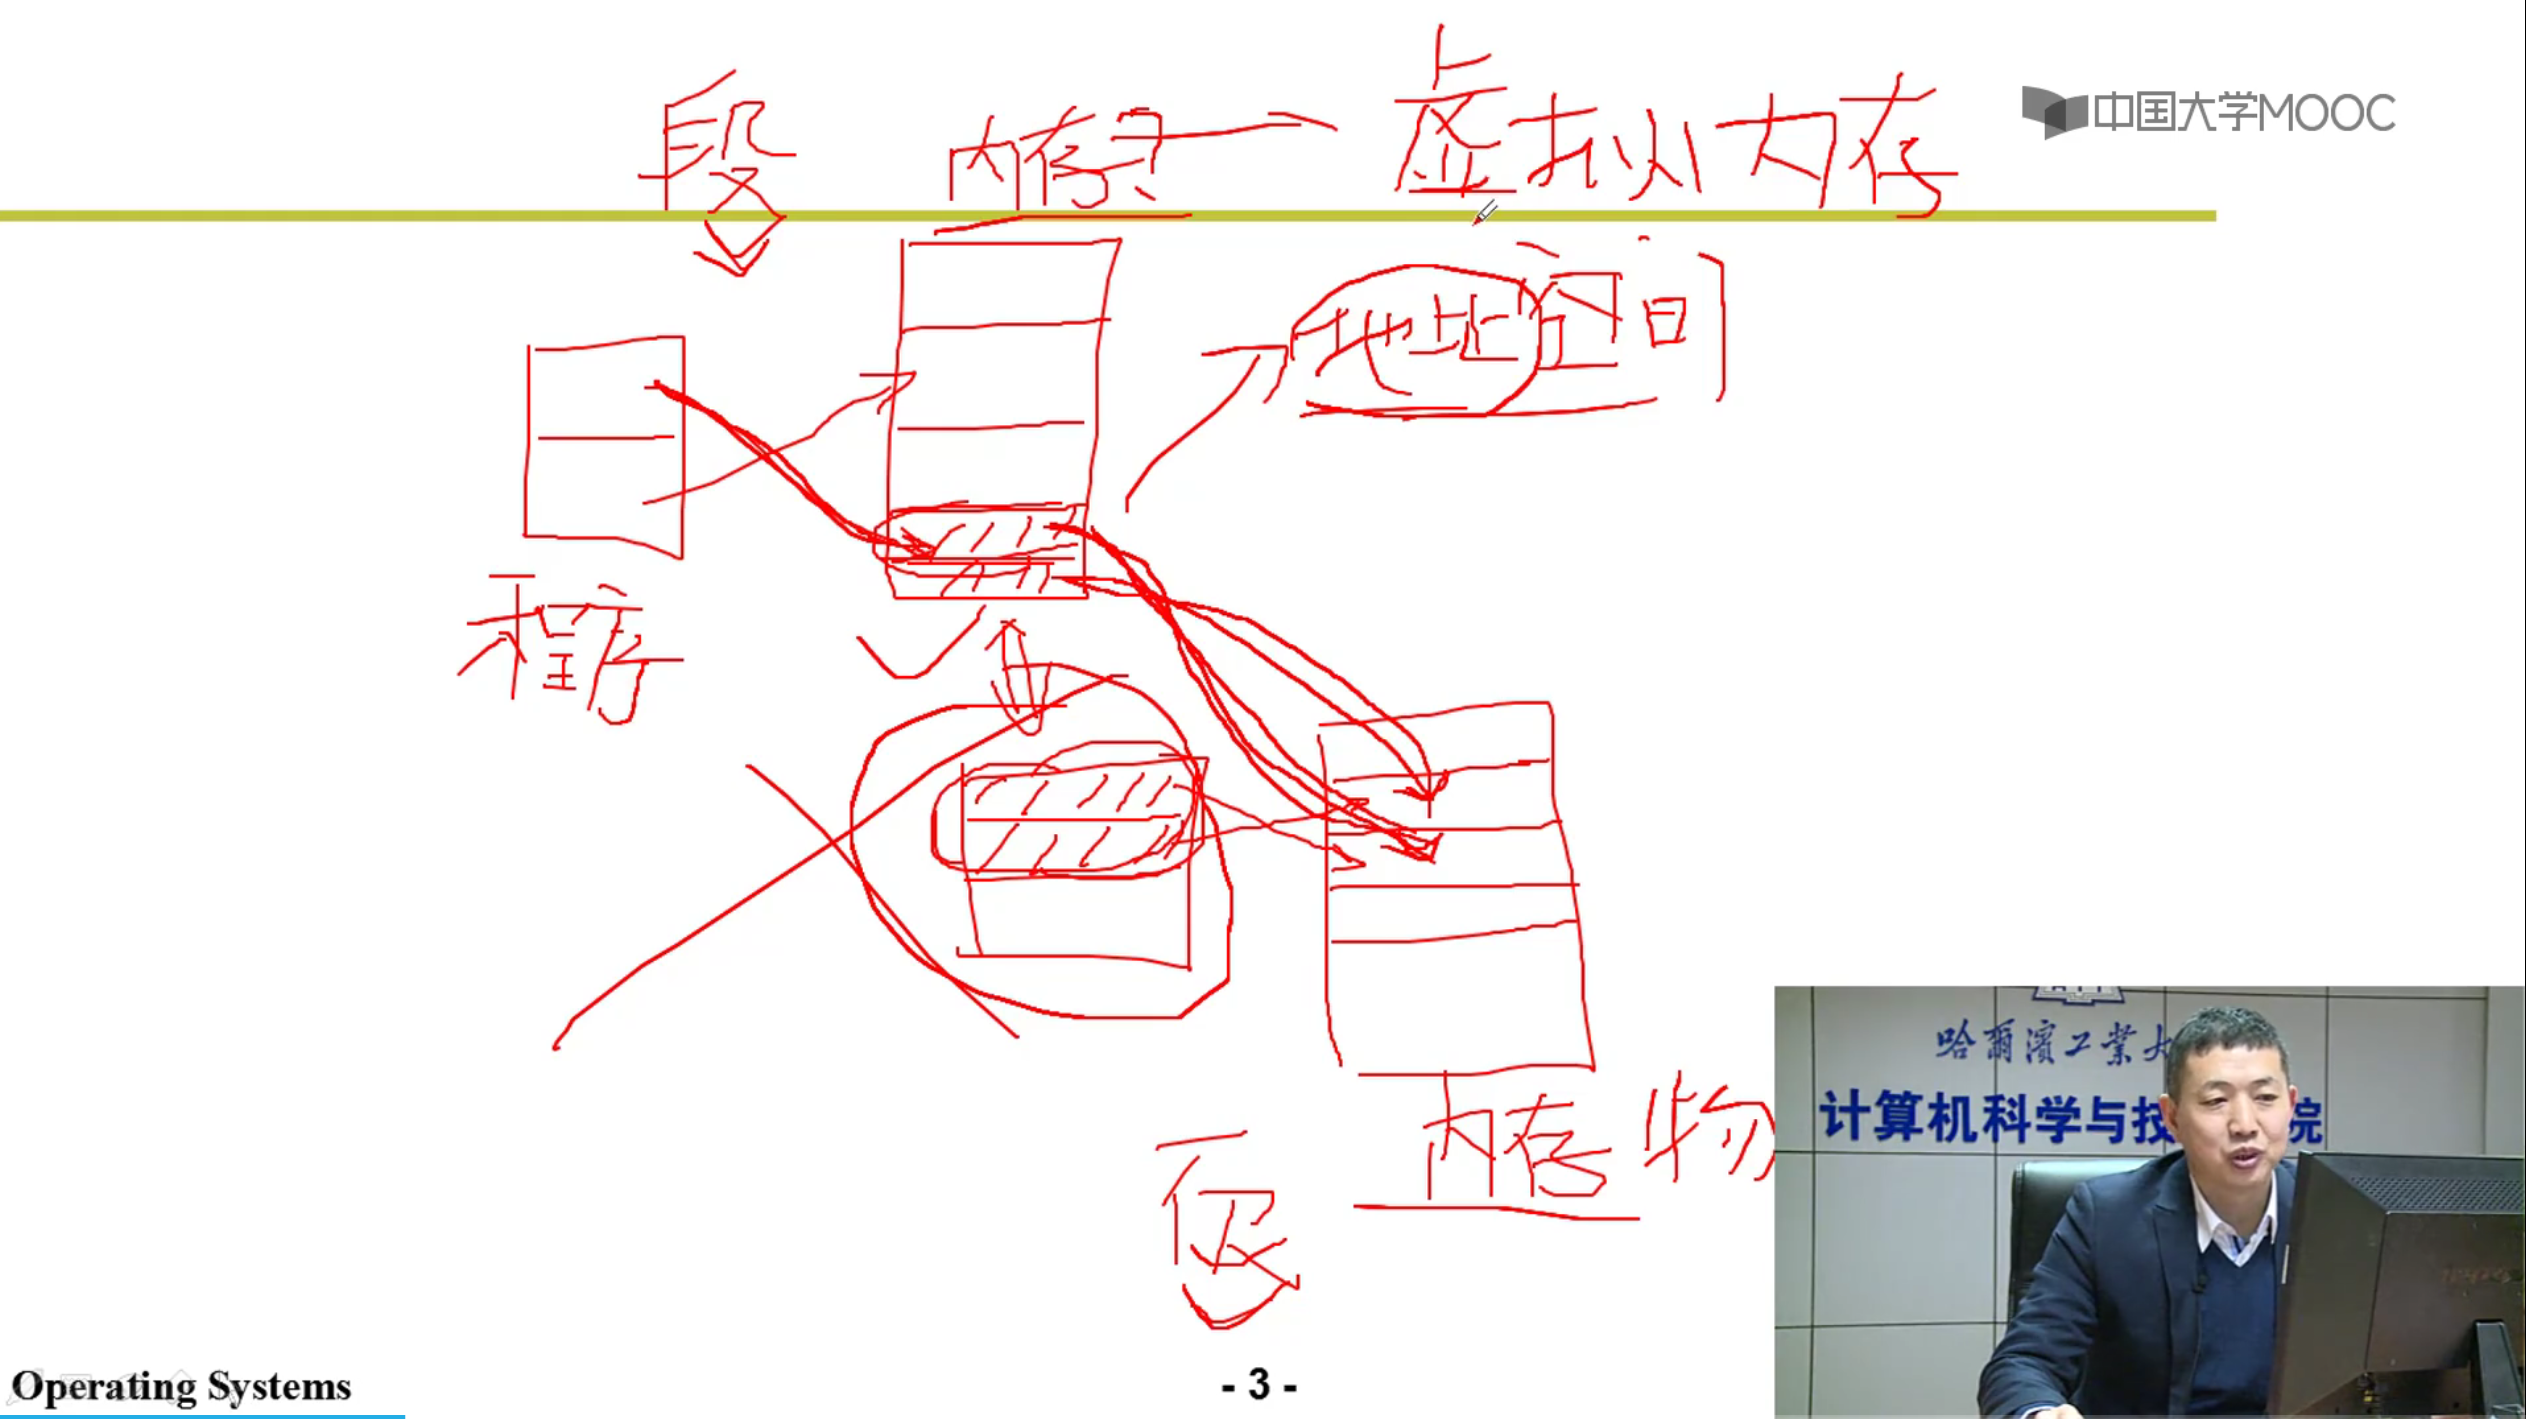 段 内存? 虚拟内存
中国大学MOOC
地址空间
程序
内存 物
页
哈爾濱工業大
计算机科学与技 院
Operating Systems
- 3 -